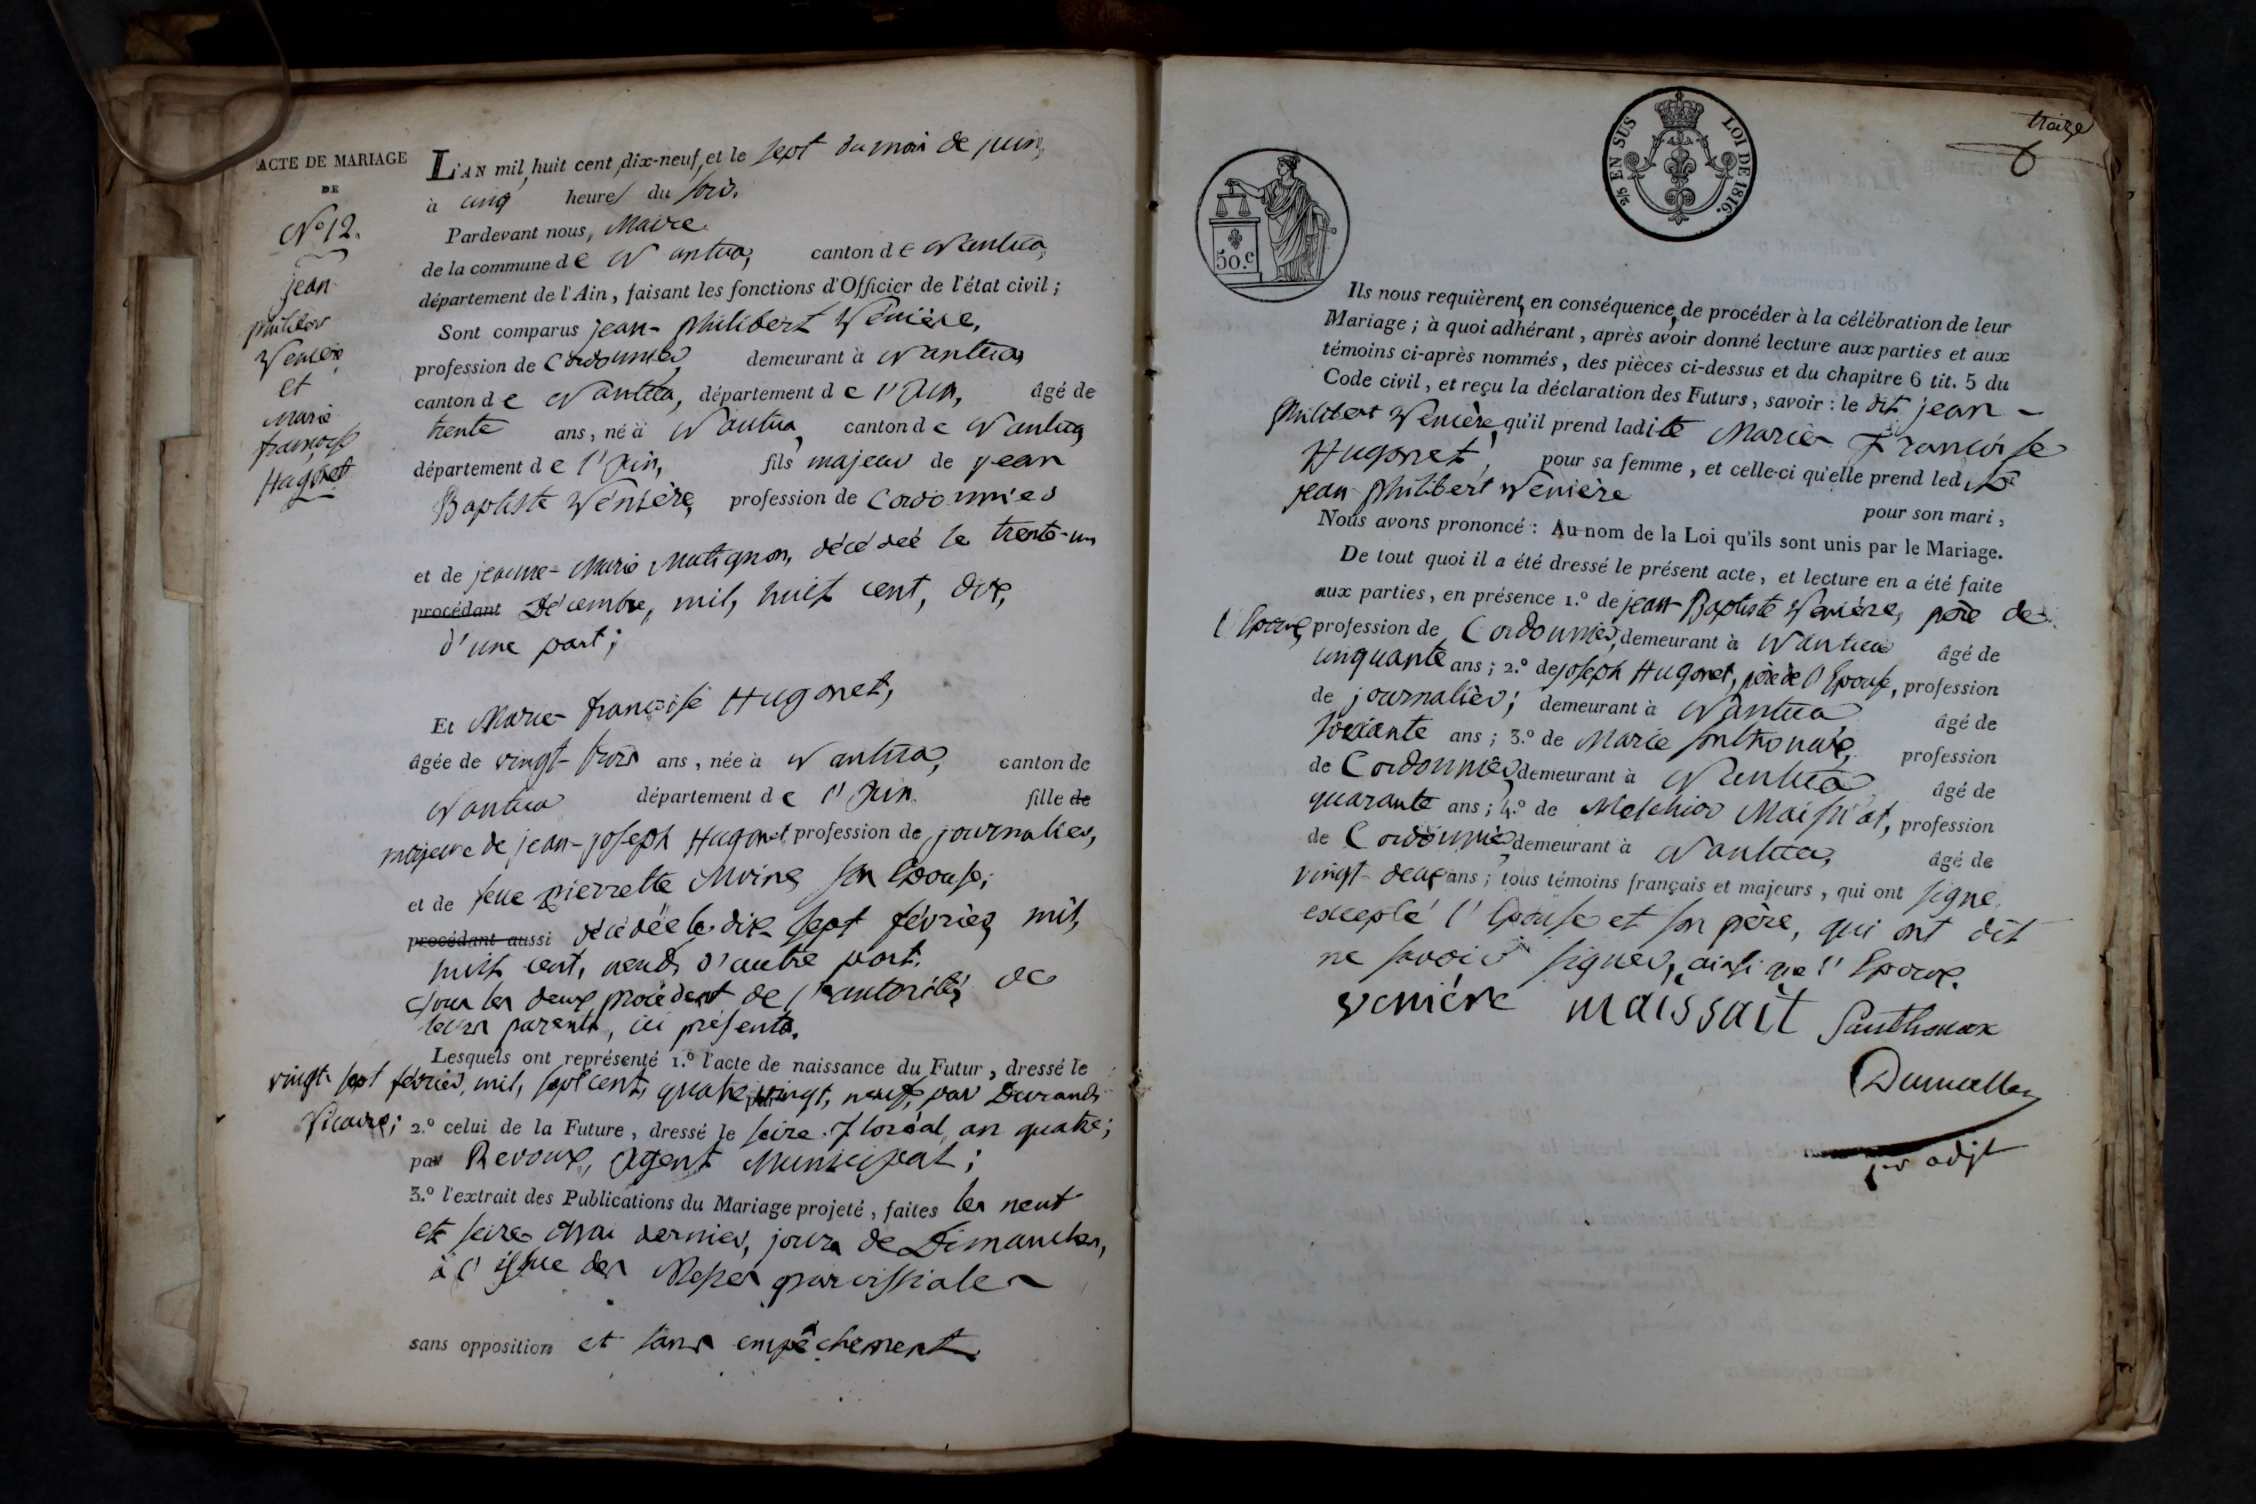 ACTE DE MARIAGE
DE
N.º 12.
jean
philibert
Venière
et
Marie
françoise
Hugonet
L'AN mil, huit cent, dix-neuf, et le sept du mois de juin,
à cinq heures du soir.
Pardevant nous, Maire
de la commune de Nantua, canton de Nantua,
département de l'Ain, faisant les fonctions d'Officier de l'état civil ;
Sont comparus jean-philibert Venière,
profession de Cordonnier demeurant à Nantua,
canton de Nantua, département de l'Ain, âgé de
trente ans, né à Nantua, canton de Nantua
département de l'Ain, fils majeur de jean
Baptiste Venière, profession de Cordonnier
et de jeanne-Marie Matignon, décédée le trente-un
procédant Décembre, mil, huit cent, dix,
d'une part ;
Et Marie-françoise Hugonet,
âgée de vingt-trois ans, née à Nantua, canton de
Nantua département de l'Ain. fille de
majeure de jean-joseph Hugonet profession de journalier,
et de feue pierrette Moine son Epouse ;
procédant aussi décédée le dix-sept février, mil,
huit cent, neuf, d'autre part.
Tous les deux procédent de l'autorité de
leurs parents, ici présents.
Lesquels ont représenté 1.º l'acte de naissance du Futur, dressé le
vingt-sept février, mil, sept cent, quatre vingt, neuf, par Durand
Vicaire ; 2.º celui de la Future, dressé le seize floréal an quatre ;
par Revoux, Agent Municipal ;
3.º l'extrait des Publications du Mariage projeté, faites les neuf
et seize Mai dernier, jours de Dimanches,
à l'issue des Messes parroissiales
sans opposition et sans empêchement.
treize
2/5 EN SUS LOI DE 1816.
50.c
Ils nous requièrent, en conséquence, de procéder à la célébration de leur
Mariage ; à quoi adhérant, après avoir donné lecture aux parties et aux
témoins ci-après nommés, des pièces ci-dessus et du chapitre 6 tit. 5 du
Code civil, et reçu la déclaration des Futurs, savoir : le dit jean-
philibert Venière, qu'il prend ladite Marie-Françoise
Hugonet, pour sa femme, et celle-ci qu'elle prend led it
jean philibert Venière pour son mari,
Nous avons prononcé : Au nom de la Loi qu'ils sont unis par le Mariage.
De tout quoi il a été dressé le présent acte, et lecture en a été faite
aux parties, en présence 1.º de jean-Baptiste Venière, père de
l'Epoux, profession de Cordonnier, demeurant à Nantua âgé de
cinquante ans ; 2.º de joseph Hugonet, père de l'Epouse, profession
de journalier ; demeurant à Nantua âgé de
soixante ans ; 3.º de Marie Sonthonax, profession
de Cordonnier, demeurant à Nantua âgé de
quarante ans ; 4.º de Melchior Maissiat, profession
de Cordonnier, demeurant à Nantua, âgé de
vingt-deux ans ; tous témoins français et majeurs, qui ont signé
excepté l'Epouse et son père, qui ont dit
ne savoir signer, ainsi que l'Epoux.
venière maissait Santhonax
1er adjt